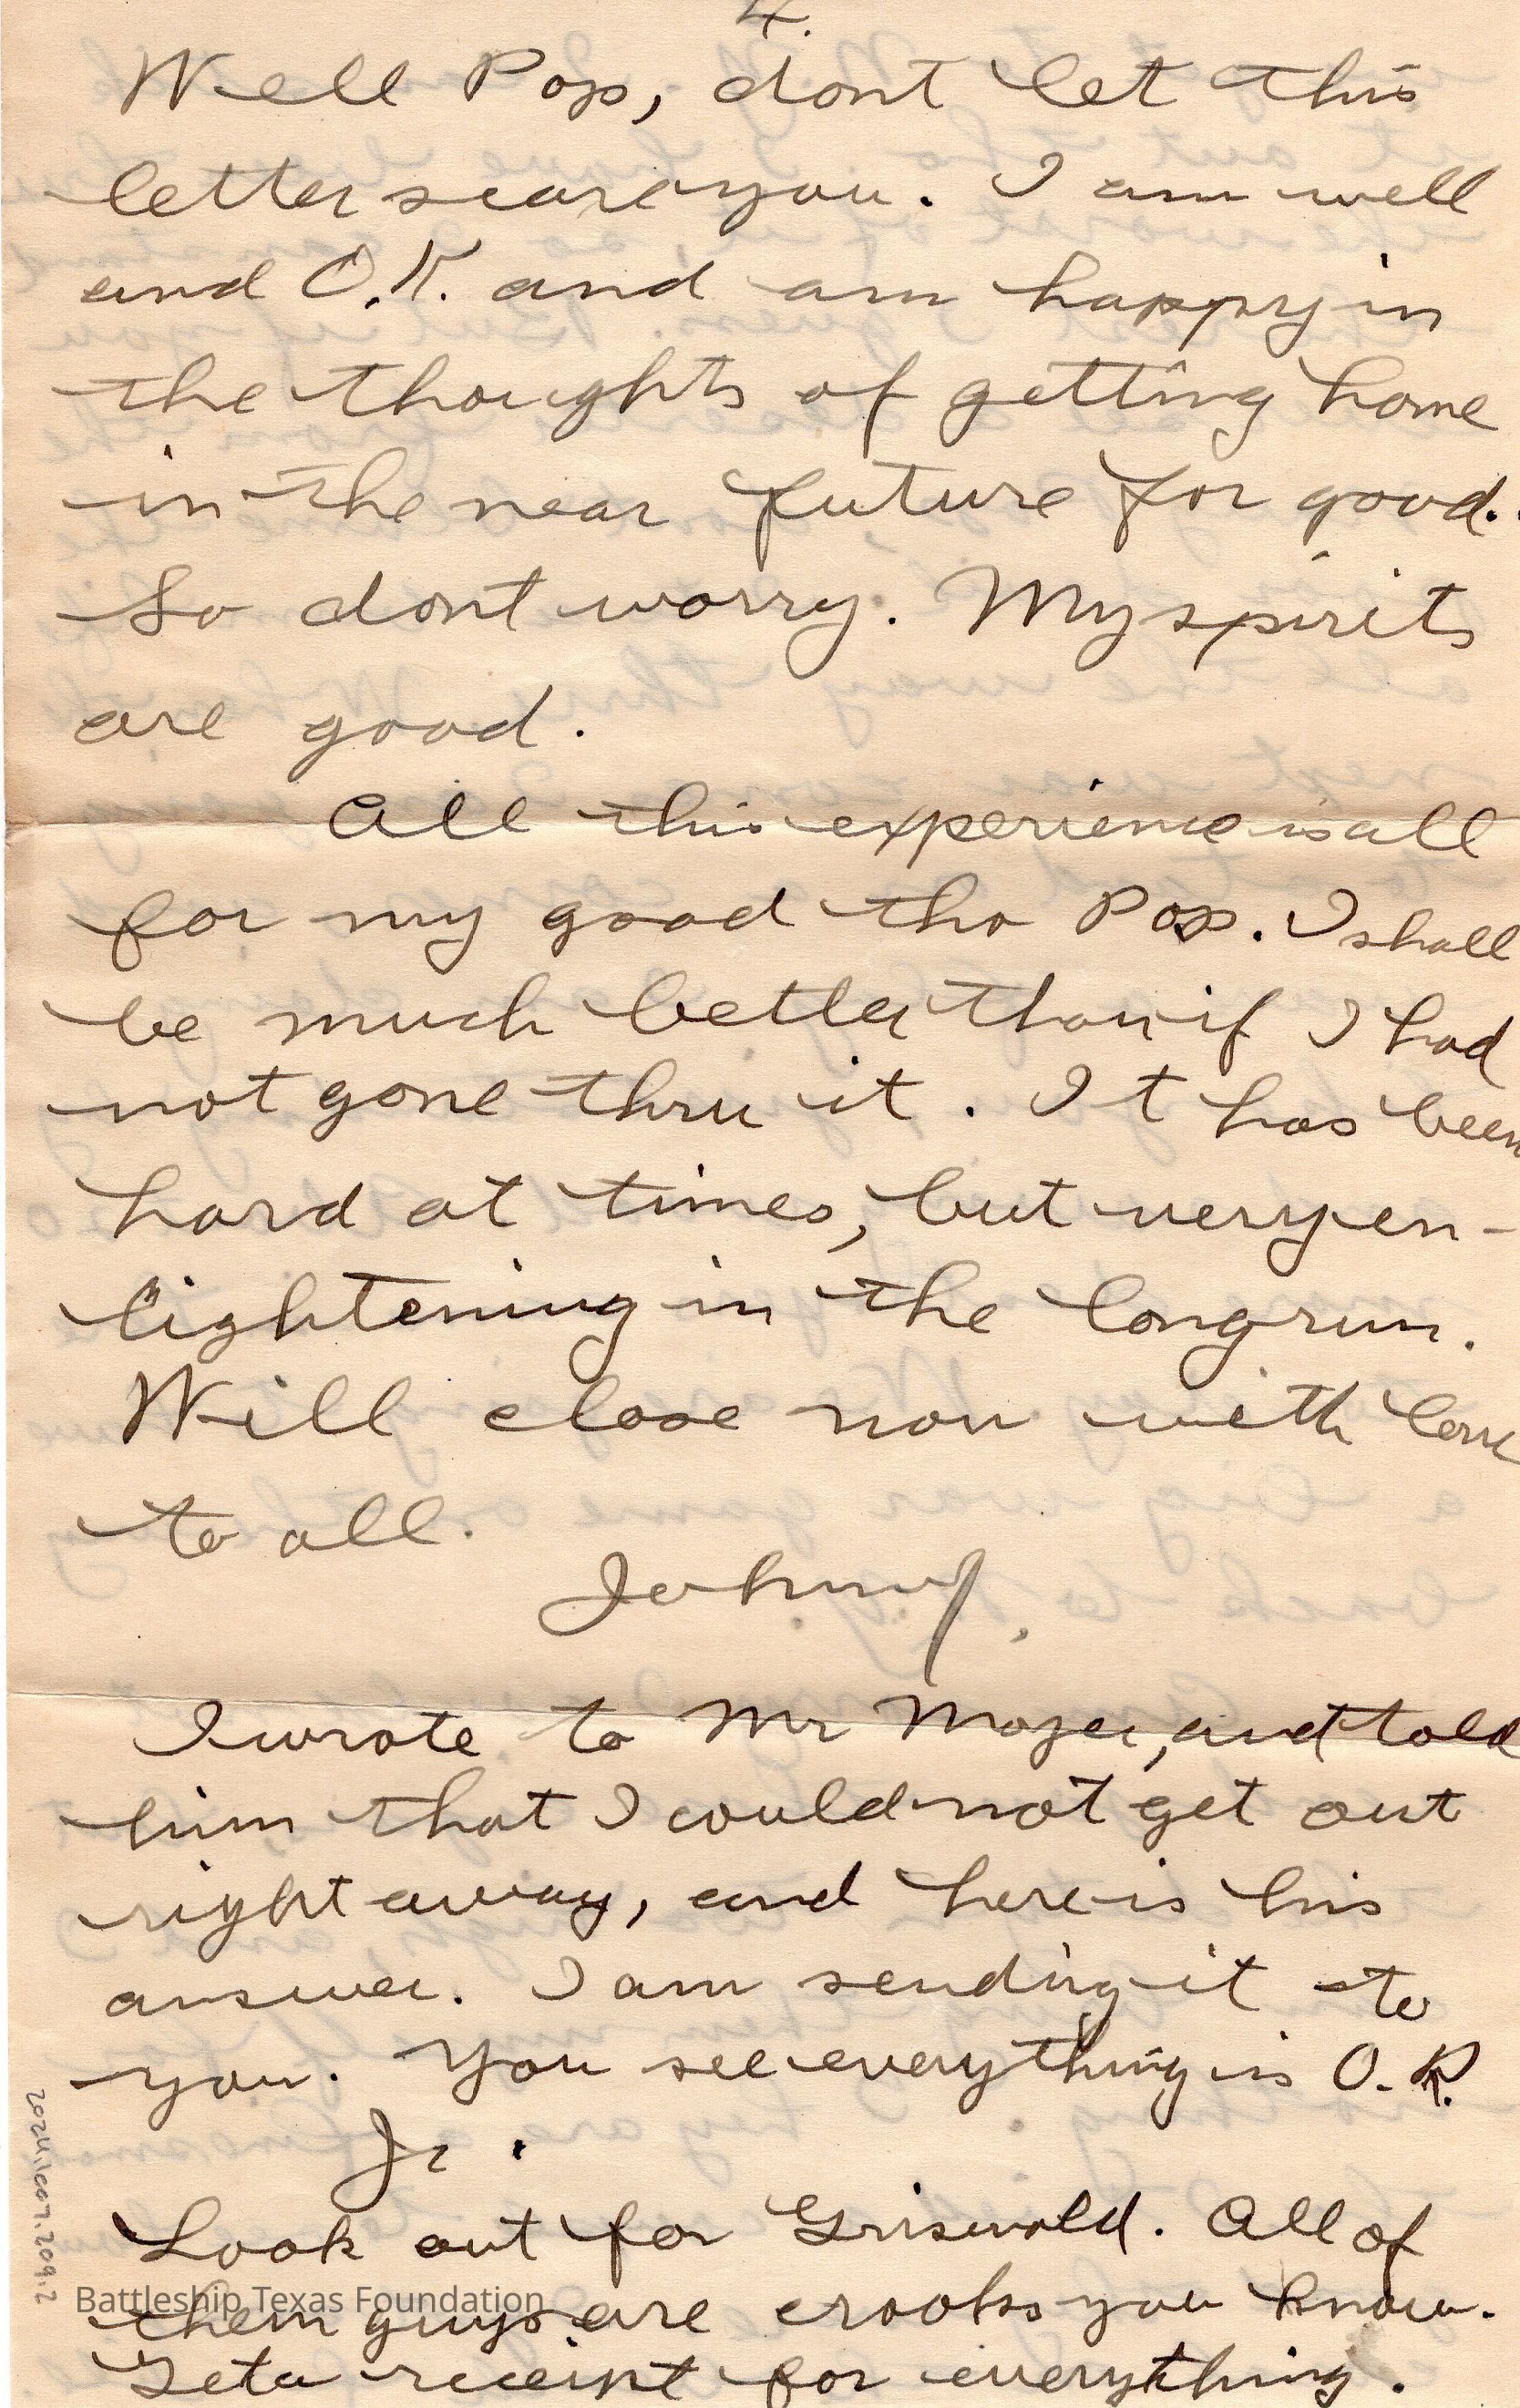 4.
Well Pop, dont let this
letter scare you. I am well
and O.K. and am happy in
the thoughts of getting home
in the near future for good.
So dont worry. My spirits
are good.
All this experience is all
for my good tho Pop. I shall
be much better than if I had
not gone thru it. It has been
hard at times, but very en-
lightening in the long run.
Will close now with love
to all.
Johnny.
I wrote to Mr Mozer, and told
him that I could not get out
right away, and here is his
answer. I am sending it to
you. You see everything is O.K.
Jr.
Look out for Griswold. All of
them guys are crooks you know.
Get a receipt for everything.
2024.1007.209.2
Battleship Texas Foundation